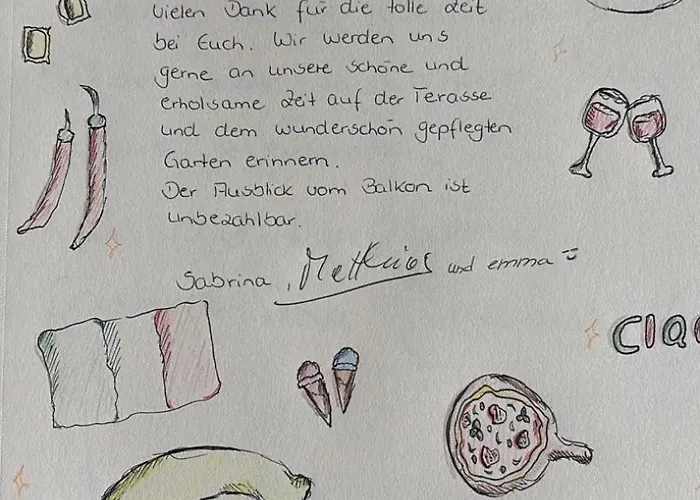 vielen Dank für die tolle Zeit
bei Euch. Wir werden uns
gerne an unsere schöne und
erholsame Zeit auf der Terasse
und dem wunderschön gepflegten
Garten erinnern.
Der Ausblick vom Balkon ist
unbezahlbar.
Sabrina, und emma
CIAO